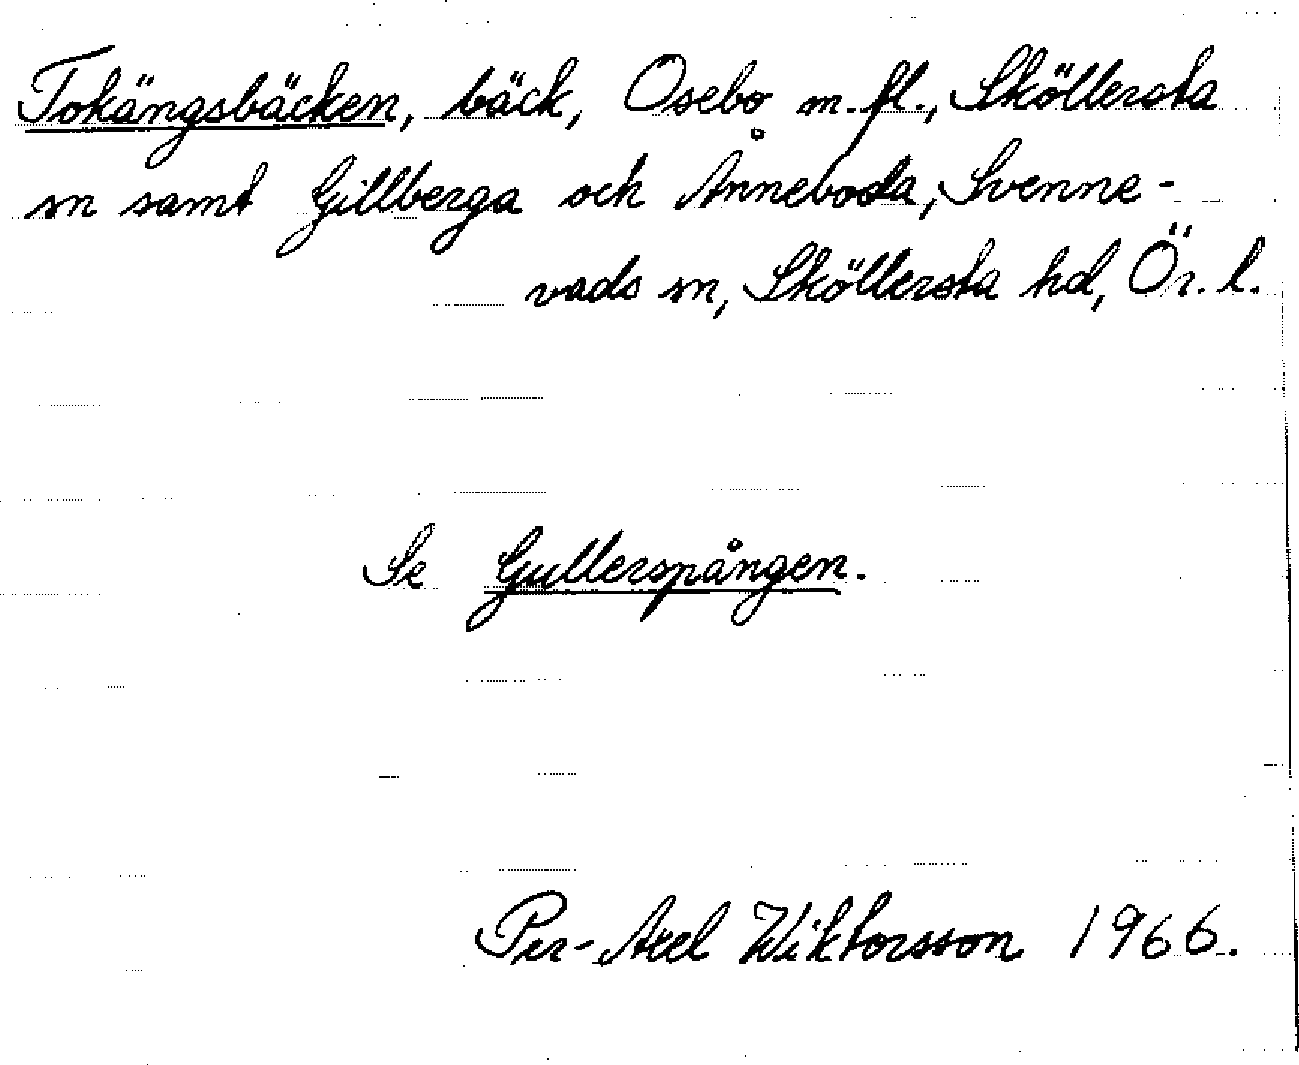 Tokängsbäcken, bäck, Osebo m. fl., Sköllersta
sn samt Gillberga och Ånneboda, Svenne-
vads sn, Sköllersta hd, Ör. l.
Se Gullerspången.
Per-Axel Wiktorsson 1966.